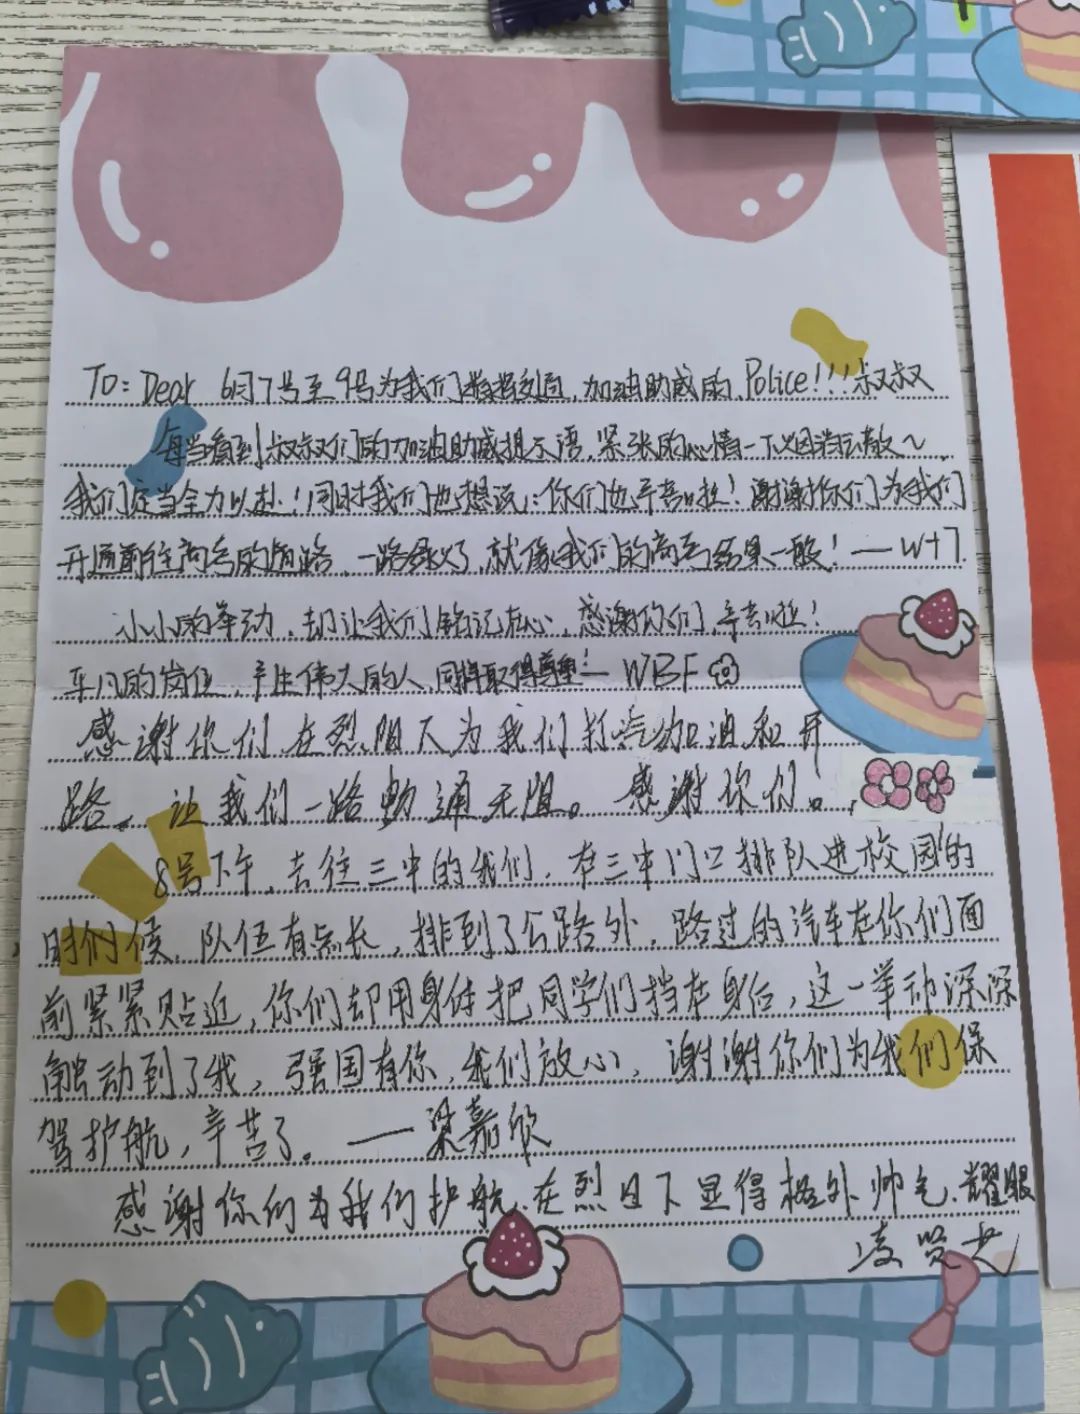 To: Dear 6月7号至9号为我们疏通交通,加油助威的 Police!!!叔叔
每当看到叔叔们的加油助威提示语,紧张的心情一下烟消云散~
我们定当全力以赴!同时我们也想说:你们也辛苦啦!谢谢你们为我们
开通前往高考的道路,一路绿灯,就像我们的高考结果一般!——W+7.
小小的举动,却让我们铭记在心,感谢你们,辛苦啦!
平凡的岗位,伟大的人,同样取得尊重!——WBF
感谢你们在烈阳下为我们打气加油和开
路,让我们一路畅通无阻。感谢你们。
8号下午,去往三中的我们,在三中门口排队进校园的
时们候,队伍有点长,排到了公路外,路过的汽车在你们面
前紧紧贴近,你们却用身体把同学们挡在身后,这一举动深深
触动到了我,强国有你,我们放心,谢谢你们为我们保
驾护航,辛苦了。——梁嘉欣
感谢你们为我们护航,在烈日下显得格外帅气、耀眼
凌贤